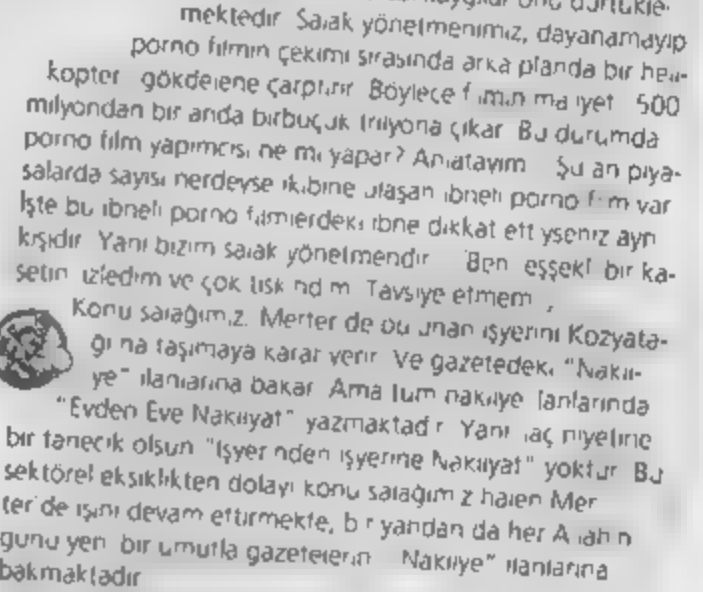 mektedir Salak yönetmenimiz, dayanamayıp
porno filmin çekimi sırasında arka planda bir heli-
kopter gökdelene çarptırır Böylece filmin maliyeti 500
milyondan bir anda birbuçuk trilyona çıkar Bu durumda
porno film yapımcısı ne mi yapar? Anlatayım Şu an piya-
salarda sayısı nerdeyse ikibine ulaşan ibneli porno film var
İşte bu ibneli porno filmlerdeki ibne dikkat ettiyseniz aynı
kişidir Yani bizim salak yönetmendir Ben eşşekli bir ka-
setin izledim ve çok tiskindim Tavsiye etmem
Konu salağımız. Merter de bulunan işyerini Kozyata-
ğı na taşımaya karar verir Ve gazetedeki "Nakli-
ye" ilanlarına bakar Ama tüm nakliye ilanlarında
"Evden Eve Nakliyat" yazmaktadır Yani ilaç niyetine
bir tanecik olsun "İşyerinden işyerine Nakliyat" yoktur Bu
sektörel eksiklikten dolayı konu salağımız halen Mer
ter'de işini devam ettirmekte, bir yandan da her Allahın
günü yeni bir umutla gazetelerin Nakliye" ilanlarına
bakmaktadır